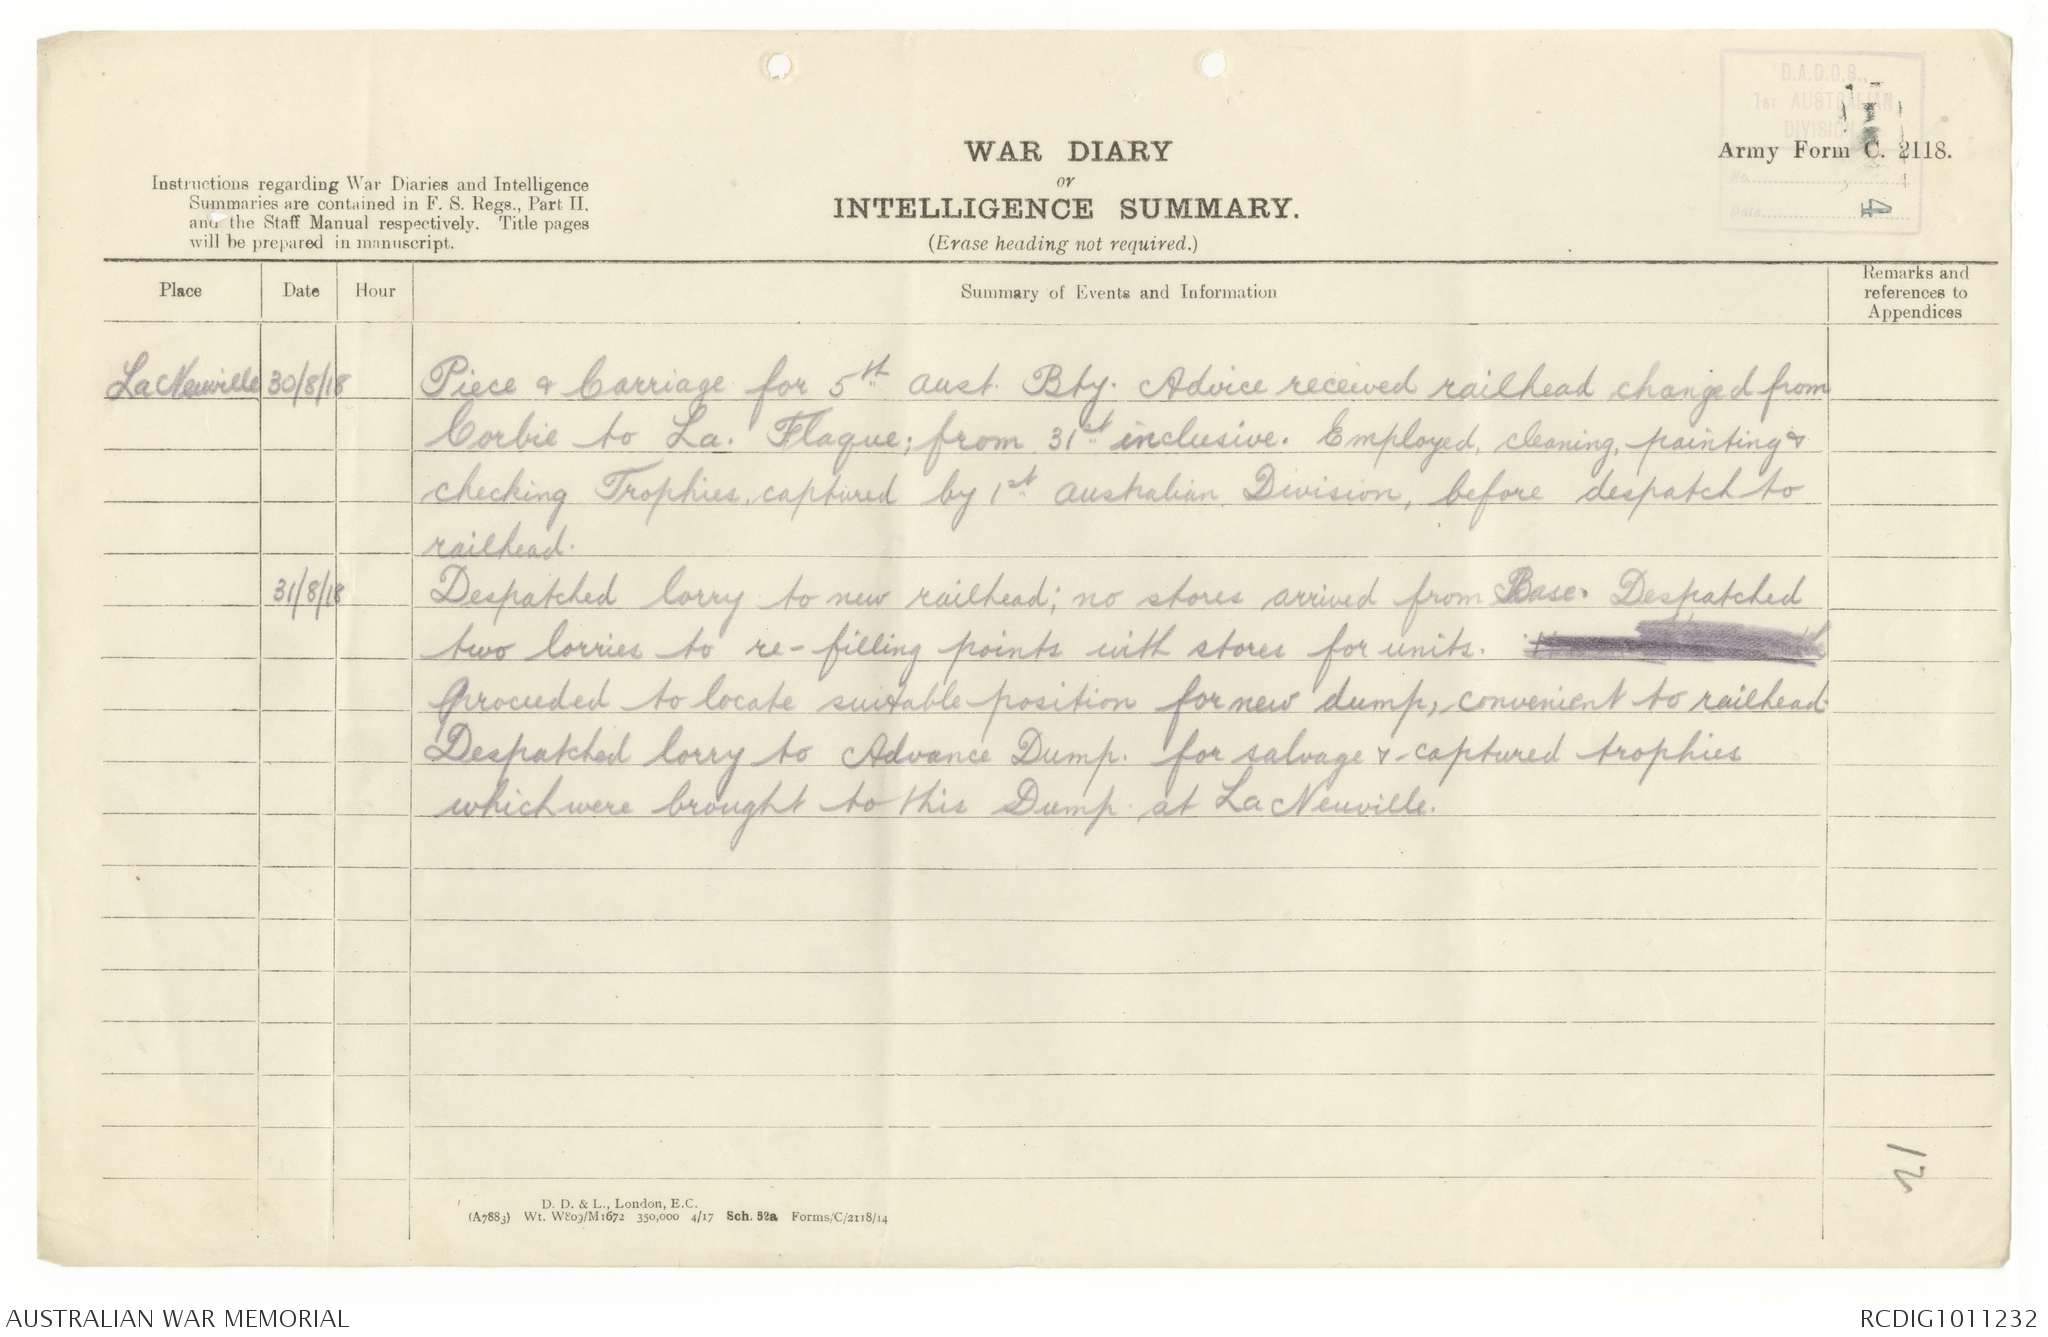 D.A.D.O.S.,
1st AUSTRALIAN
DIVISION
No.
Date
4
Army Form C. 2118.
WAR DIARY
or
INTELLIGENCE SUMMARY.
(Erase heading not required.)
Instructions regarding War Diaries and Intelligence
Summaries are contained in F. S. Regs., Part II.
and the Staff Manual respectively. Title pages
will be prepared in manuscript.
Place Date Hour Summary of Events and Information Remarks and references to Appendices
La Neuville 30/8/18 Piece & Carriage for 5th Aust. Bty. Advice received railhead changed from
Corbie to La. Flaque; from 31st inclusive. Employed, cleaning, painting &
checking Trophies, captured by 1st Australian Division, before despatch to
railhead.
31/8/18 Despatched lorry to new railhead; no stores arrived from Base. Despatched
two lorries to re-filling points with stores for units.
Proceeded to locate suitable position for new dump, convenient to railhead.
Despatched lorry to Advance Dump. for salvage & captured trophies
which were brought to this Dump at La Neuville.
21
D. D. & L., London, E.C.
(A7883) Wt. W809/M1672 350,000 4/17 Sch. 52a Forms/C/2118/14
AUSTRALIAN WAR MEMORIAL
RCDIG1011232